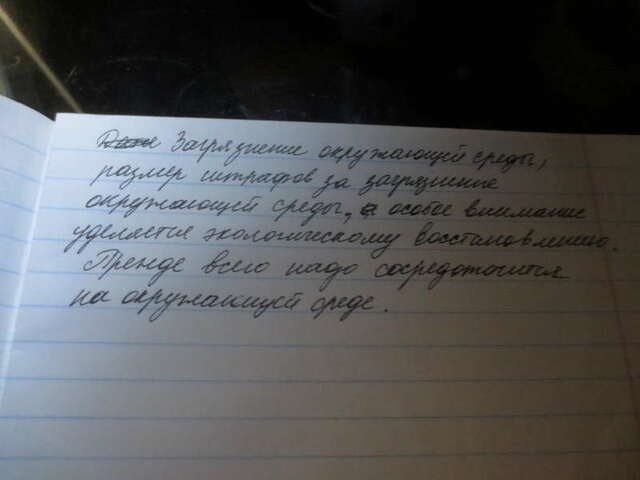 Загрязнение окружающей среды,
размер штрафов за загрязнение
окружающей среды, особое внимание
уделяется экологическому восстановлению.
Прежде всего надо сосредоточится
на окружающей среде.